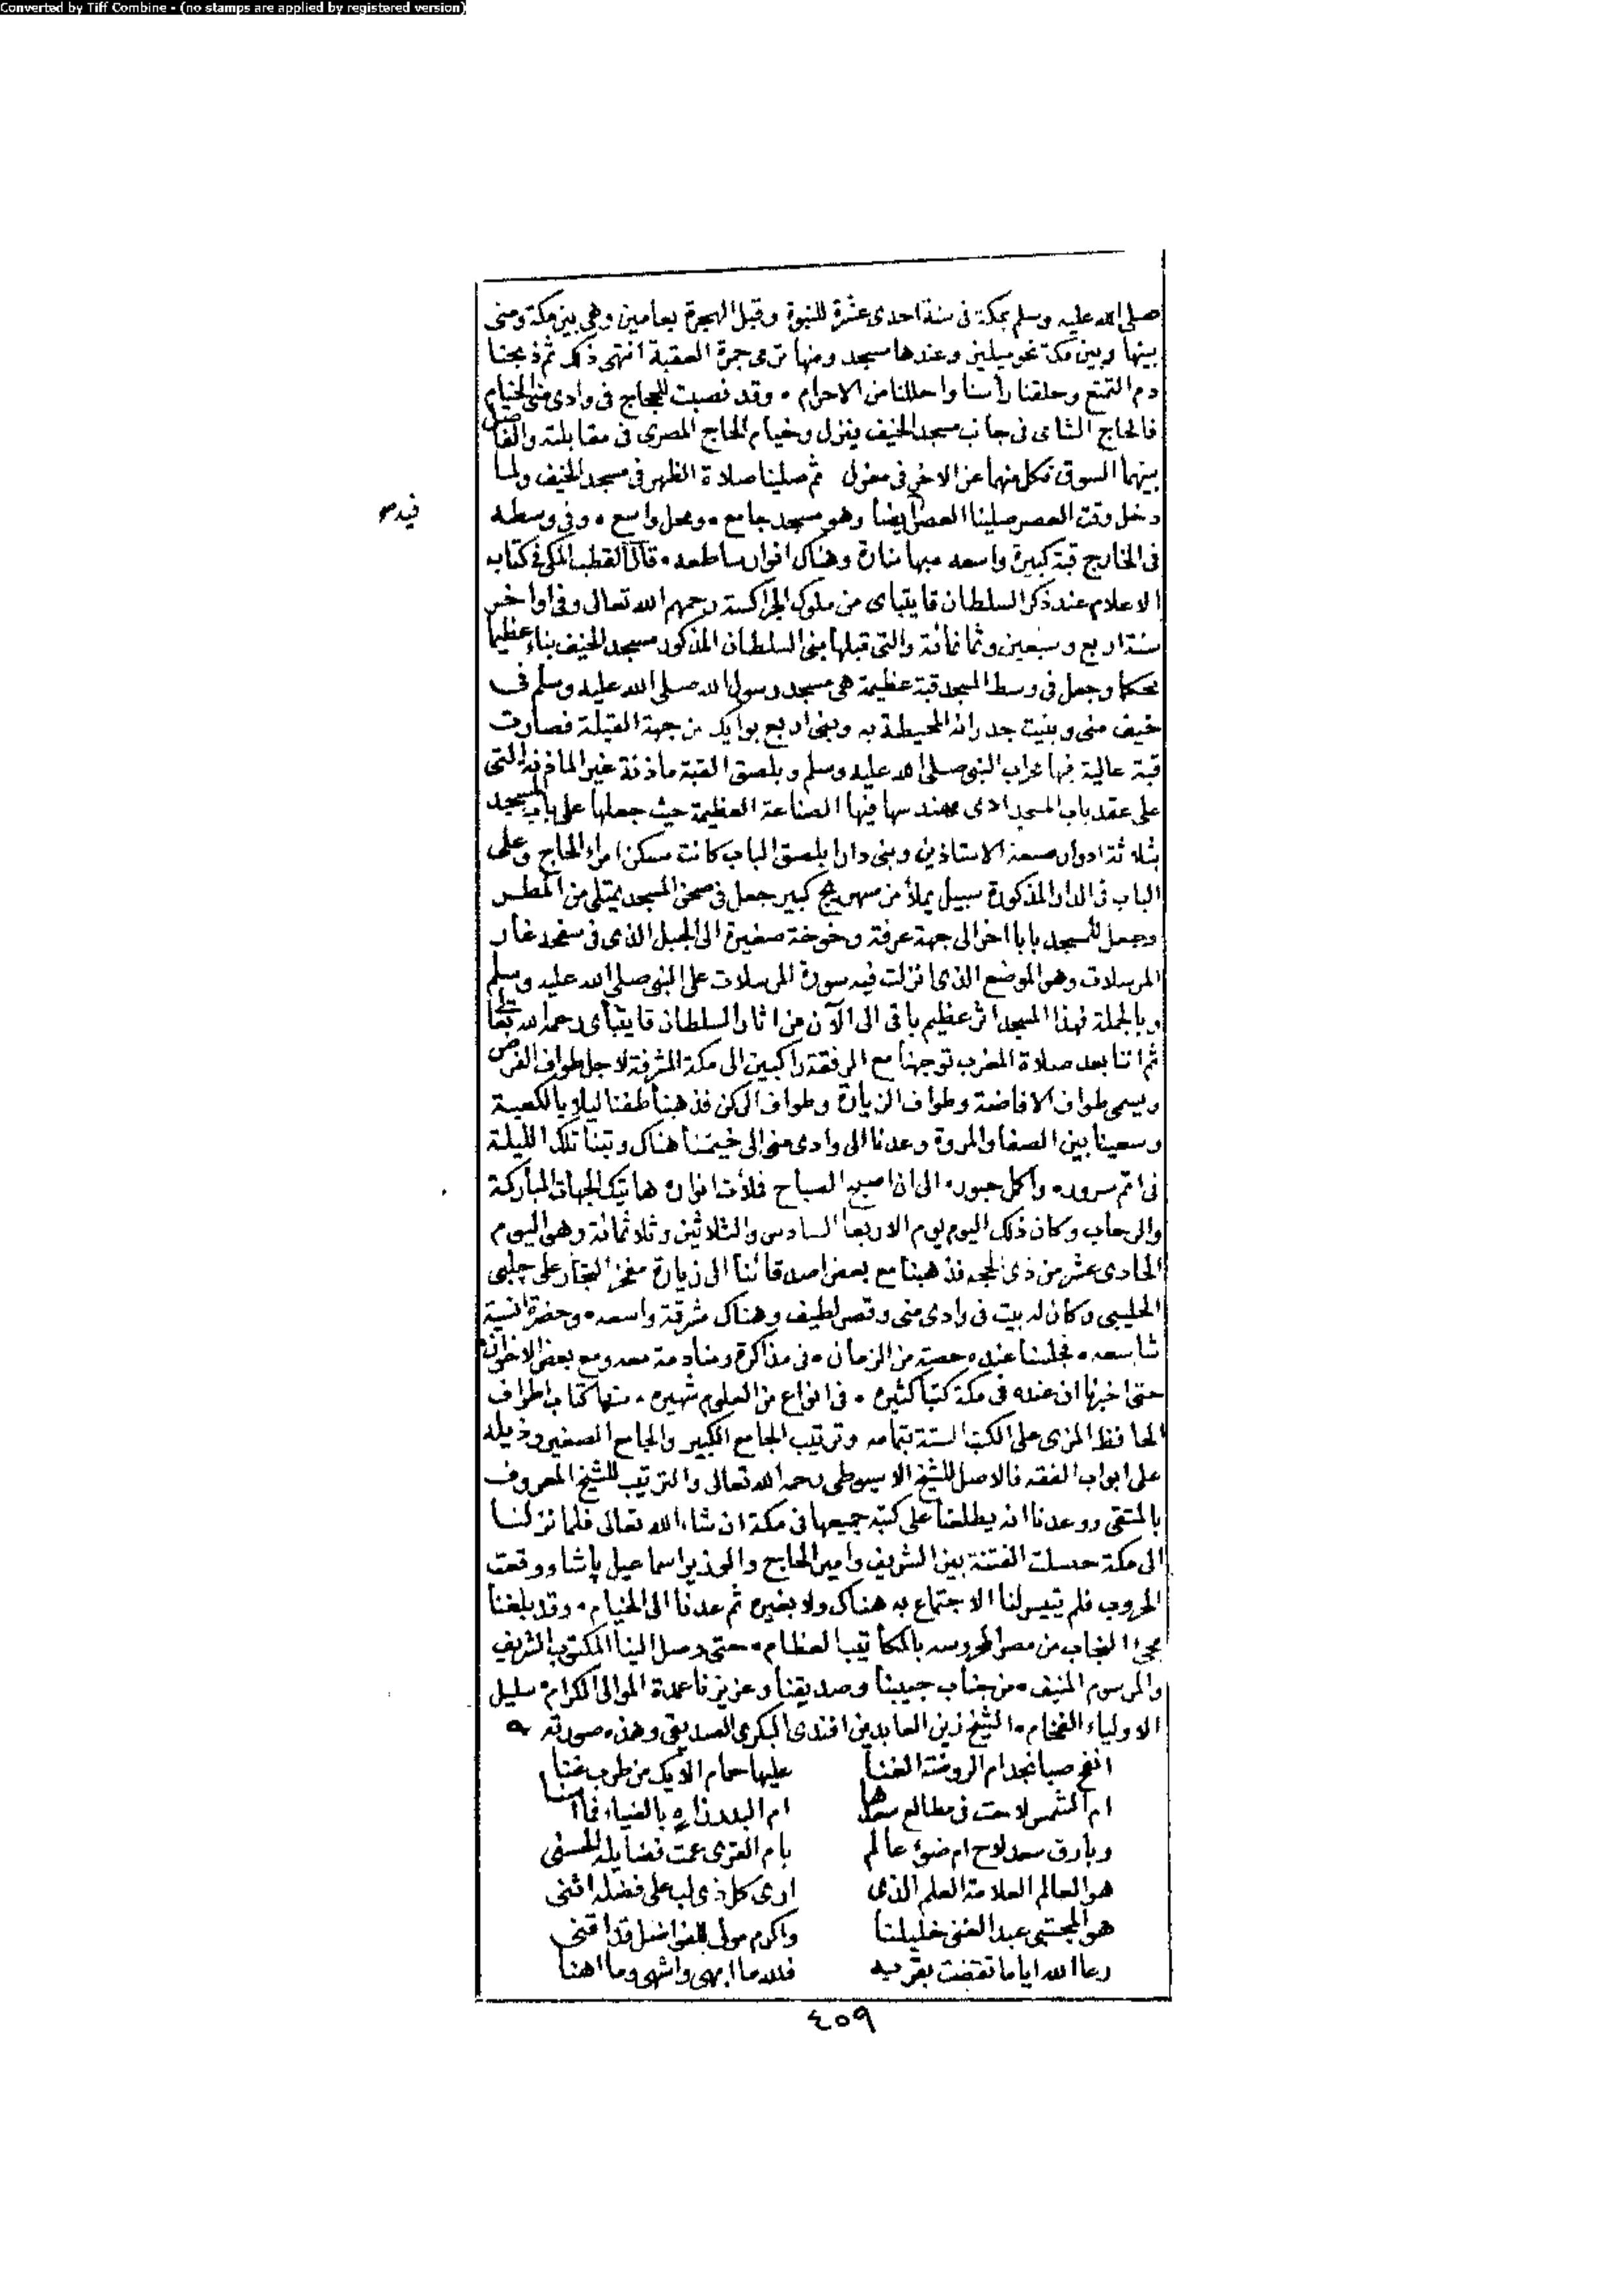 Converted by Tiff Combine - (no stamps are applied by registered version)
صلى الله عليه وسلم بمكة فى سنة احدى عشرة للنبوة وقبل الهجرة بعامين وهى بين مكة ومنى
بينها وبين مكة نحو ميلين وعندها مسجد ومنها ترمى جمرة العقبة انتهى ذكر ثم ذبحنا
دم التمتع وحلقنا رأسنا واحللنا من الاحرام ۰ وقد نصبت للحجاج فى وادى منى الخيام
فالحاج الشامى فى جانب مسجد الخيف ينزل وخيام الحاج المصرى فى مقابلته والفاصل
بينهما السوق فكل منهما عن الاخر فى معزل ثم صلينا صلاة الظهر فى مسجد الخيف ولما
دخل وقت العصر صلينا العصر ايضا وهو مسجد جامع ۰ ومحل واسع ۰ وفى وسطه
فيه
فى الخارج قبة كبيرة واسعه مبها منارة وهناك انوار ساطعه ۰ قال القطب المكى فى كتاب
الاعلام عند ذكر السلطان قايتباى من ملوك الجراكسة رحمهم الله تعالى وفى اواخر
سنة اربع وسبعين وثمانمائة والتى قبلها بنى السلطان المذكور مسجد الخيف بناء عظيما
محكما وجعل فى وسط المسجد قبة عظيمة هى مسجد رسول الله صلى الله عليه وسلم فى
خيف منى وبنيت جدرانه المحيطة به وبنى اربع بوايك من جهة القبلة فصارت
قبة عالية فيها محراب النبى صلى الله عليه وسلم وبلصق القبة ماذنة غير الماذنة التى
على عقد باب المسجد ادى مهندسها فيها الصناعة العظيمة حيث جعلها على باب المسجد
بثلاثة ادوار صنعة الاستاذين وبنى دارا بلصق الباب كانت مسكن امراء الحاج وعلى
الباب فى الدار المذكورة سبيل يملأ من صهريج كبير جعل فى صحن المسجد يمتلى من المطر
وجعل للمسجد بابا اخر الى جهة عرفة وخوخة صغيرة الى الجبل الذى فى سفحه غار
المرسلات وهو الموضع الذى انزلت فيه سورة المرسلات على النبى صلى الله عليه وسلم
وبالجملة فهذا المسجد اثر عظيم باقى الى الآن من اثار السلطان قايتباى رحمه الله تعالى
ثم اننا بعد صلاة المغرب توجهنا مع الرفقة راكبين الى مكة المشرفة لاجل طواف الفرض
ويسمى طواف الافاضة وطواف الزيارة وطواف الركن فذهبنا طفنا ليلا بالكعبة
وسعينا بين الصفا والمروة وعدنا الى وادى منى الى خيمنا هناك وبتنا تلك الليلة
فى اتم سرور ۰ وأكمل حبور ۰ الى ان اصبح الصباح فلأت انوار ۰ هاتيك الجهات المباركة
والرحاب وكان ذلك اليوم يوم الاربعا السادس والثلاثين وثلاثمائة وهو اليوم
الحادى عشر من ذى الحجه فذهبنا مع بعض اصدقائنا الى زيارة مفخر التجار على چلبى
الحليبى وكان له بيت فى وادى منى وقصر لطيف وهناك شرقة واسعه ۰ وحضرة انسية
شاسعه ۰ فجلسنا عنده حصة من الزمان ۰ فى مذاكرة ومنادمة معه ومع بعض الاخوان
حتى اخبرنا ان عنده فى مكة كتبا كثيره ۰ فى انواع من العلوم شهيره ۰ منها كتاب اطراف
الحافظ المزى على الكتب الستة بتمامه وترتيب الجامع الكبير والجامع الصغير وذيله
على ابواب الفقه فالاصل للشيخ الاسيوطى رحمه الله تعالى والترتيب للشيخ المعروف
بالمتقى ووعدنا انه يطلعنا على كتبه جميعها فى مكة ان شاء الله تعالى فلما نزلنا
الى مكة حصلت الفتنة بين الشريف وامير الحاج والوزير اسماعيل پاشا ووقعت
الحروب فلم تيسر لنا الاجتماع به هناك ولا بغيره ثم عدنا الى الخيام ۰ وقد بلغنا
مجئ النجاب من مصر المحروسه بالمكاتيب العظام ۰ حتى وصل الينا المكتوب الشريف
والمرسوم المنيف ۰ من جناب حبيبنا وصديقنا وعزيزنا عمدة الموالى الكرام ۰ سليل
الاولياء الفخام ۰ الشيخ زين العابدين افندى البكرى الصديقى وهذه صورته
انفح صبا نجد ام الروضة الغنا عليها حمام الأيك من طرب غنا
ام الشمس لاحت فى مطالع سعدها ام البدر زاه بالضياء
وبارق سعد لاح ام ضوء عالم بام القرى عمت فضايله الحسنى
هو العالم العلامة العلم الذى ارى كل ذى لب على فضله اثنى
هو المجتبى عبد الغنى خليلنا واكرم مولى للفواضل قد اقنى
رعا الله اياما تقضت بقربه فلله ما ابهى واشهى وما اهنا
٤٥٩